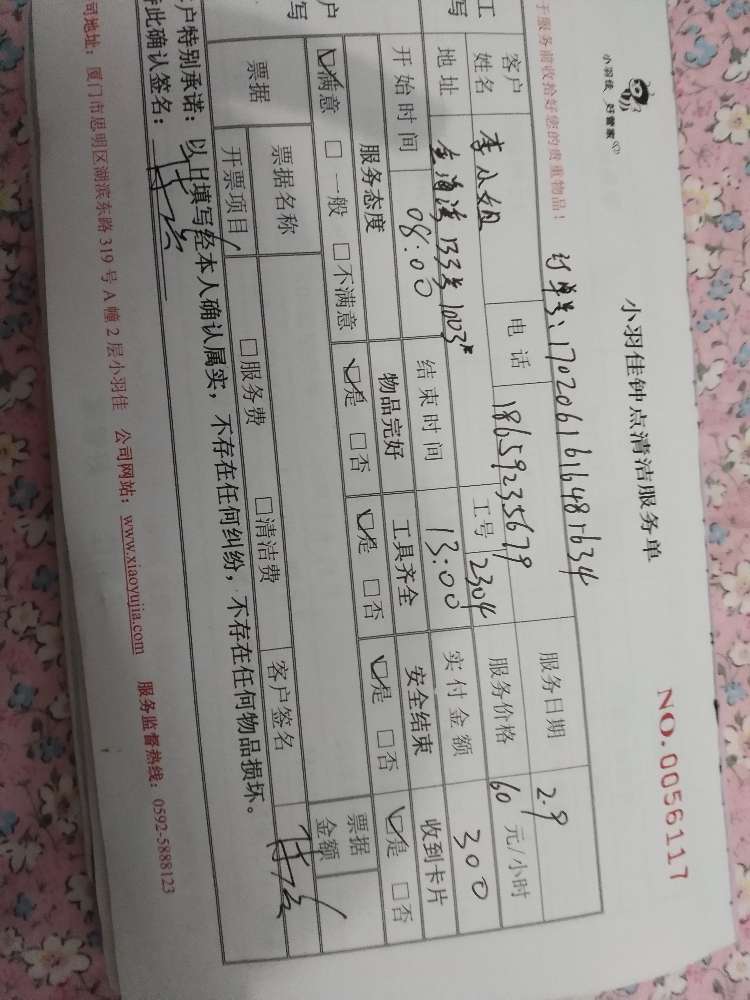 小羽佳 好管家
小羽佳钟点清洁服务单
NO.0056117
于服务前收拾好您的贵重物品!
订单号:1702061616481634
服务日期 2.9
客户姓名 李小姐 电话 18659235679 服务价格 60 元/小时
地址 133号1003# 工号 2304 实付金额 300
开始时间 08:00 结束时间 13:00
服务态度 物品完好 工具齐全 安全结束 收到卡片
☑满意 □一般 □不满意 ☑是 □否 ☑是 □否 ☑是 □否 ☑是 □否
票据 票据名称 □服务费 □清洁费 票据金额
开票项目 客户签名
户特别承诺:以上填写经本人确认属实,不存在任何纠纷,不存在任何物品损坏。
此确认签名:
司地址:厦门市思明区湖滨东路319号A幢2层小羽佳 公司网站:www.xiaoyujia.com 服务监督热线:0592-5888123